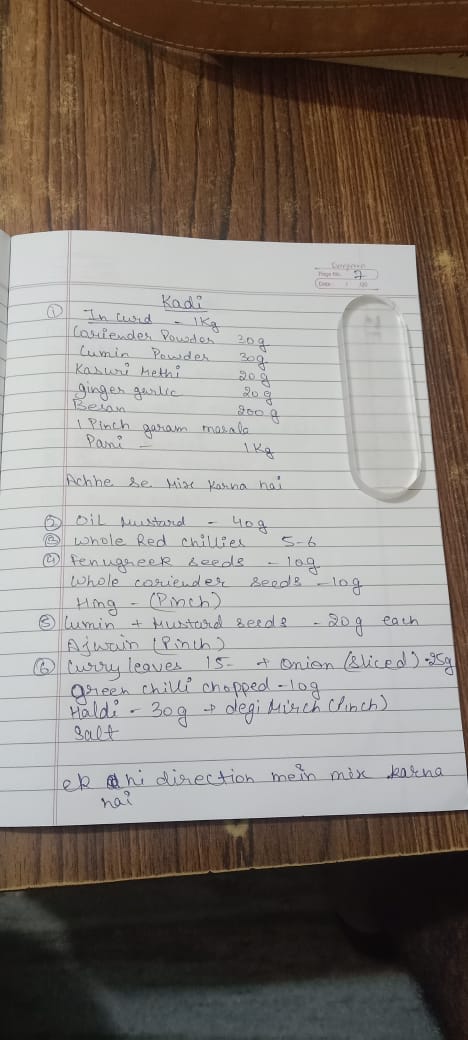 Page No. 7
Date / /20
Kadi
① In curd - 1Kg
Coriender Powder 30g
Cumin Powder 30g
Kasuri Methi 20g
ginger garlic 20g
Besan 200g
1 Pinch garam masala
Pani - 1Kg
Achhe se Mix Karna hai
② Oil Mustard - 40g
③ Whole Red chillies 5-6
④ Fenugreek seeds - 10g
whole coriender seeds - 10g
Hing - (Pinch)
⑤ Cumin + Mustard seeds - 20g each
Ajwain (Pinch)
⑥ Curry leaves 15- + Onion (sliced) -25g
green chilli chopped - 10g
Haldi - 30g + degi Mirch (Pinch)
Salt
ek hi direction mein mix karna
hai